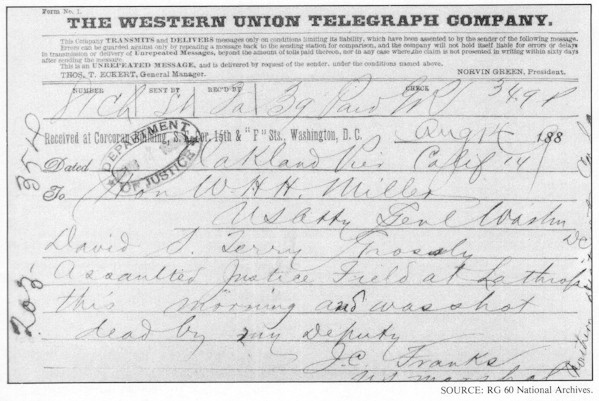 Form No. 1.
THE WESTERN UNION TELEGRAPH COMPANY.
This Company TRANSMITS and DELIVERS messages only on conditions limiting its liability, which have been assented to by the sender of the following message.
Errors can be guarded against only by repeating a message back to the sending station for comparison, and the company will not hold itself liable for errors or delays
in transmission or delivery of Unrepeated Messages, beyond the amount of tolls paid thereon, nor in any case where the claim is not presented in writing within sixty days
after sending the message.
This is an UNREPEATED MESSAGE, and is delivered by request of the sender, under the conditions named above.
THOS. T. ECKERT, General Manager. NORVIN GREEN, President.
NUMBER SENT BY REC'D BY CHECK
39 Paid 349 P
Received at Corcoran Building, S. Cor. 15th & "F" Sts., Washington, D. C. Aug 14 188
DEPARTMENT OF JUSTICE
Dated Oakland Pier Calif 14
To Hon W H H. Miller
US Atty Genl Washn DC
David S. Terry Grossly
Assaulted Justice Field at Lathrop
this morning and was shot
dead by my Deputy
J.C. Franks
US Marshal
Northern
SOURCE: RG 60 National Archives.